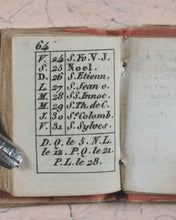 64
V. 24 S. Yv. V. J.
S. 25 Noel.
D. 26 S. Etienn.
L. 27 S. Jean e.
M. 28 SS. Innoc.
M. 29 S. Th. de C.
J. 30 Sᵉ Colomb.
V. 31 S. Sylves.
D. Q. le 5. N. L.
le 12. P. Q. le 21.
P. L. le 28.